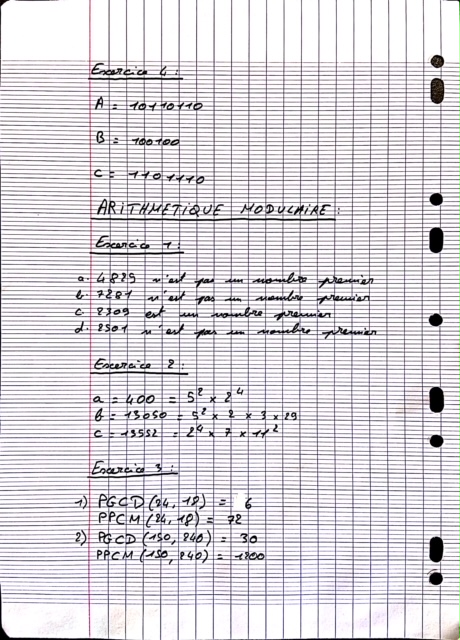 Exercice 4 :
A = 10110110
B = 100100
C = 1101110
ARITHMETIQUE MODULAIRE :
Exercice 1 :
a. 4829 n'est pas un nombre premier
b. 7281 n'est pas un nombre premier
c. 2309 est un nombre premier
d. 2501 n'est pas un nombre premier
Exercice 2 :
a = 400 = 5² x 2⁴
b = 13050 = 5² x 2 x 3 x 29
c = 13552 = 2⁴ x 7 x 11²
Exercice 3 :
1) PGCD (24, 18) = 6
PPCM (24, 18) = 72
2) PGCD (150, 240) = 30
PPCM (150, 240) = 1200